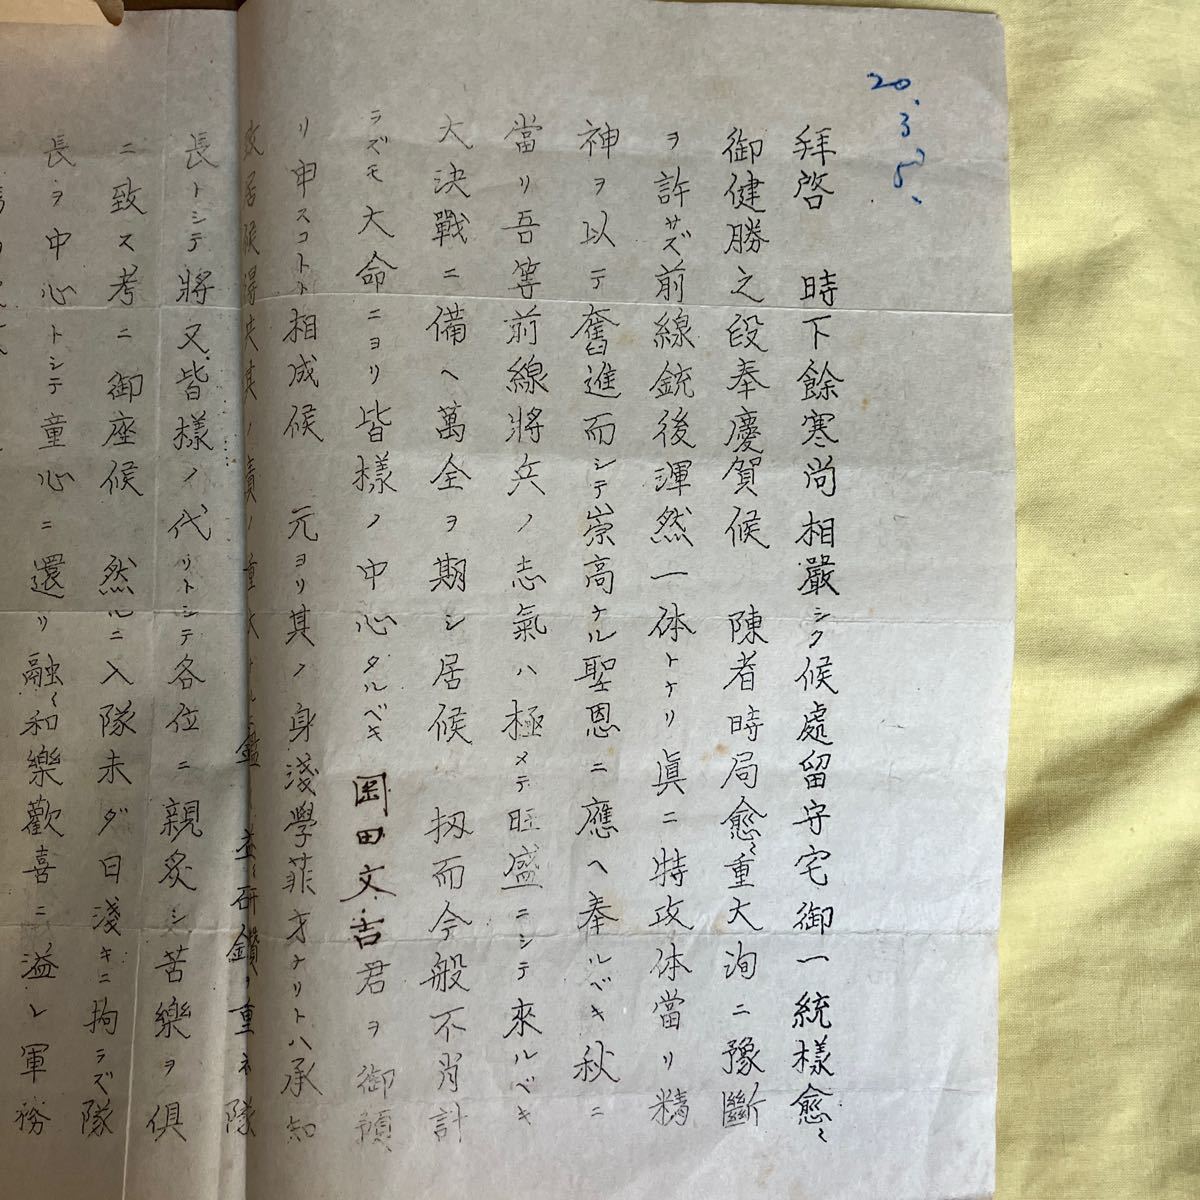 20.3.8、
拜啓　時下餘寒尚相嚴シク候處留守宅御一統樣愈〻
御健勝之段奉慶賀候　陳者時局愈〻重大洵ニ豫斷
ヲ許サズ前線銃後渾然一体トナリ眞ニ特攻体當リ精
神ヲ以テ奮進而シテ崇高ナル聖恩ニ應ヘ奉ルベキ秋ニ
當リ吾等前線將兵ノ志氣ハ極メテ旺盛ニシテ來ルベキ
大決戰ニ備ヘ萬全ヲ期シ居候　扨而今般不肖計
ラズモ大命ニヨリ皆樣ノ中心タルベキ岡田文吉君ヲ御預
リ申スコトト相成候　元ヨリ其ノ身淺學菲才ナリトハ承知
致居候得共其ノ責ノ重大ナルニ鑑ミ益〻研鑽ヲ重ネ隊
長トシテ將又皆樣ノ代リトシテ各位ニ親炙シ苦樂ヲ俱
ニ致ス考ニ御座候　然ルニ入隊未ダ日淺キニ拘ラズ隊
長ヲ中心トシテ童心ニ還リ融〻和樂歡喜ニ溢レ軍務